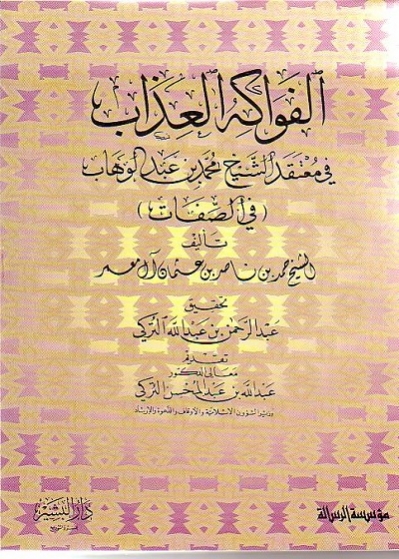 الفواكه العذاب
في معتقد الشيخ محمد بن عبد الوهاب
(في الصفات)
تأليف
الشيخ حمد بن ناصر بن عثمان آل معمر
تحقيق
عبد الرحمن بن عبد الله التركي
تقديم
معالي الدكتور
عبد الله بن عبد المحسن التركي
وزير الشؤون الإسلامية والأوقاف والدعوة والإرشاد
مؤسسة الرسالة
دار البشير